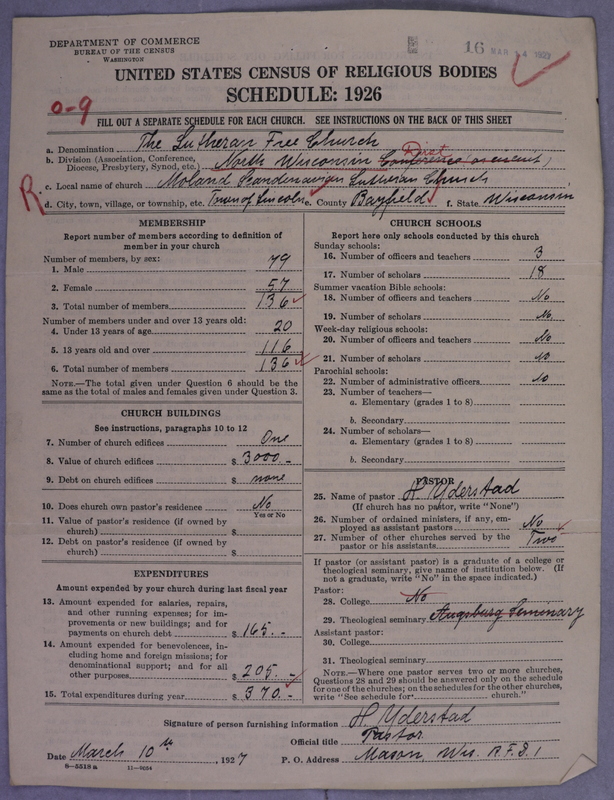 DEPARTMENT OF COMMERCE
BUREAU OF THE CENSUS
WASHINGTON
16 MAR 14 1927
UNITED STATES CENSUS OF RELIGIOUS BODIES
SCHEDULE: 1926
0-9
FILL OUT A SEPARATE SCHEDULE FOR EACH CHURCH. SEE INSTRUCTIONS ON THE BACK OF THIS SHEET
a. Denomination The Lutheran Free Church
b. Division (Association, Conference, Diocese, Presbytery, Synod, etc.) North Wisconsin Conference or circuit) Dist
R
c. Local name of church Moland Scandenavian Lutheran Church
d. City, town, village, or township, etc. Town of Lincoln e. County Bayfield f. State Wisconsin
MEMBERSHIP
Report number of members according to definition of
member in your church
Number of members, by sex:
1. Male 79
2. Female 57
3. Total number of members 136
Number of members under and over 13 years old:
4. Under 13 years of age 20
5. 13 years old and over 116
6. Total number of members 136
NOTE.—The total given under Question 6 should be
same as the total of males and females given under Question 3.
CHURCH BUILDINGS
See instructions, paragraphs 10 to 12
7. Number of church edifices One
8. Value of church edifices $ 3000.-
9. Debt on church edifices $ none
10. Does church own pastor's residence No
Yes or No
11. Value of pastor's residence (if owned by
church) $
12. Debt on pastor's residence (if owned by
church) $
EXPENDITURES
Amount expended by your church during last fiscal year
13. Amount expended for salaries, repairs,
and other running expenses; for im-
provements or new buildings; and for
payments on church debt $ 165.-
14. Amount expended for benevolences, in-
cluding home and foreign missions; for
denominational support; and for all
other purposes $ 205.-
15. Total expenditures during year $ 370.-
CHURCH SCHOOLS
Report here only schools conducted by this church
Sunday schools:
16. Number of officers and teachers 3
17. Number of scholars 18
Summer vacation Bible schools:
18. Number of officers and teachers No
19. Number of scholars No
Week-day religious schools:
20. Number of officers and teachers No
21. Number of scholars No
Parochial schools:
22. Number of administrative officers No
23. Number of teachers—
a. Elementary (grades 1 to 8)
b. Secondary
24. Number of scholars—
a. Elementary (grades 1 to 8)
b. Secondary
PASTOR
25. Name of pastor H. Yderstad
(If church has no pastor, write "None")
26. Number of ordained ministers, if any, em-
ployed as assistant pastors No
27. Number of other churches served by the
pastor or his assistants Two
If pastor (or assistant pastor) is a graduate of a college or
theological seminary, give name of institution below. (If
not a graduate, write "No" in the space indicated.)
Pastor:
28. College No
29. Theological seminary Augsburg Seminary
Assistant pastor:
30. College
31. Theological seminary
NOTE.—Where one pastor serves two or more churches,
Questions 28 and 29 should be answered only on the schedule
for one of the churches; on the schedules for the other churches,
write "See schedule for church."
Signature of person furnishing information H. Yderstad
Official title Pastor
Date March 10th, 1927 P. O. Address Mason, Wis. R.F.D. 1
8-5518 a 11-9054